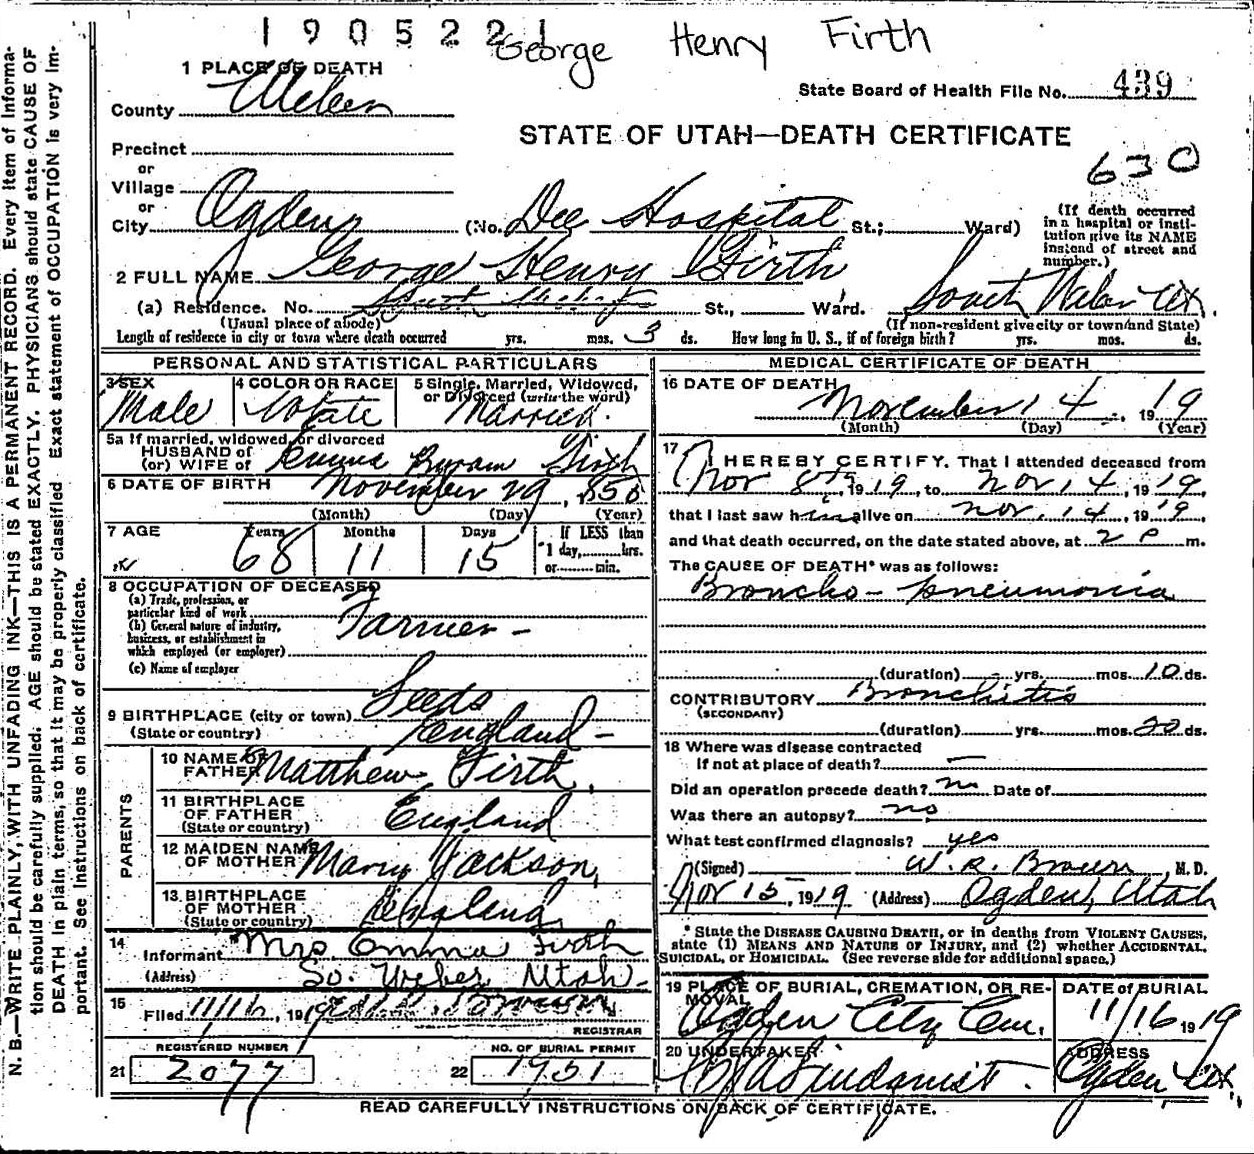 1905221
George Henry Firth
1 PLACE OF DEATH
County Weber
State Board of Health File No. 439
STATE OF UTAH—DEATH CERTIFICATE
630
Precinct
or
Village
or
City Ogden (No. Dee Hospital St.; Ward)
(If death occurred in a hospital or institution give its NAME instead of street and number.)
2 FULL NAME George Henry Firth
(a) Residence. No. St., Ward. South Weber Ut.
(Usual place of abode) (If non-resident give city or town and State)
Length of residence in city or town where death occurred yrs. mos. 3 ds. How long in U. S., if of foreign birth? yrs. mos. ds.
PERSONAL AND STATISTICAL PARTICULARS
3 SEX Male
4 COLOR OR RACE White
5 Single, Married, Widowed, or Divorced (write the word) Married.
5a If married, widowed, or divorced
HUSBAND of
(or) WIFE of Emma Byram Firth
6 DATE OF BIRTH November 29, 1850
(Month) (Day) (Year)
7 AGE 68 Years 11 Months 15 Days
If LESS than 1 day, hrs. or min.
8 OCCUPATION OF DECEASED
(a) Trade, profession, or particular kind of work Farmer -
(b) General nature of industry, business, or establishment in which employed (or employer)
(c) Name of employer
9 BIRTHPLACE (city or town) Leeds
(State or country) England -
PARENTS
10 NAME OF FATHER Matthew Firth.
11 BIRTHPLACE OF FATHER (State or country) England
12 MAIDEN NAME OF MOTHER Mary Jackson,
13 BIRTHPLACE OF MOTHER (State or country) England
14 Informant Mrs. Emma Firth
(Address) So. Weber, Utah -
15 Filed 11/16, 1919
REGISTRAR
21 REGISTERED NUMBER 2077
22 NO. OF BURIAL PERMIT 1951
MEDICAL CERTIFICATE OF DEATH
16 DATE OF DEATH November 14, 1919
(Month) (Day) (Year)
17 I HEREBY CERTIFY. That I attended deceased from
Nov 8th 1919, to Nov 14, 1919,
that I last saw him alive on Nov. 14, 1919,
and that death occurred, on the date stated above, at 2 P m.
The CAUSE OF DEATH* was as follows:
Broncho - pneumonia
(duration) - yrs. mos. 10 ds.
CONTRIBUTORY Bronchitis
(SECONDARY)
(duration) yrs. mos. 20 ds.
18 Where was disease contracted
If not at place of death? —
Did an operation precede death? no Date of
Was there an autopsy? no
What test confirmed diagnosis? yes
(Signed) W. R. Brown, M. D.
Nov 15, 1919 (Address) Ogden, Utah
* State the DISEASE CAUSING DEATH, or in deaths from VIOLENT CAUSES, state (1) MEANS AND NATURE OF INJURY, and (2) whether ACCIDENTAL, SUICIDAL, or HOMICIDAL. (See reverse side for additional space.)
19 PLACE OF BURIAL, CREMATION, OR REMOVAL Ogden City Cem.
DATE of BURIAL 11/16 1919
20 UNDERTAKER Lindquist.
ADDRESS Ogden, Ut.
READ CAREFULLY INSTRUCTIONS ON BACK OF CERTIFICATE.
N. B.—WRITE PLAINLY, WITH UNFADING INK—THIS IS A PERMANENT RECORD. Every item of information should be carefully supplied. AGE should be stated EXACTLY. PHYSICIANS should state CAUSE OF DEATH in plain terms, so that it may be properly classified. Exact statement of OCCUPATION is very important. See Instructions on back of certificate.